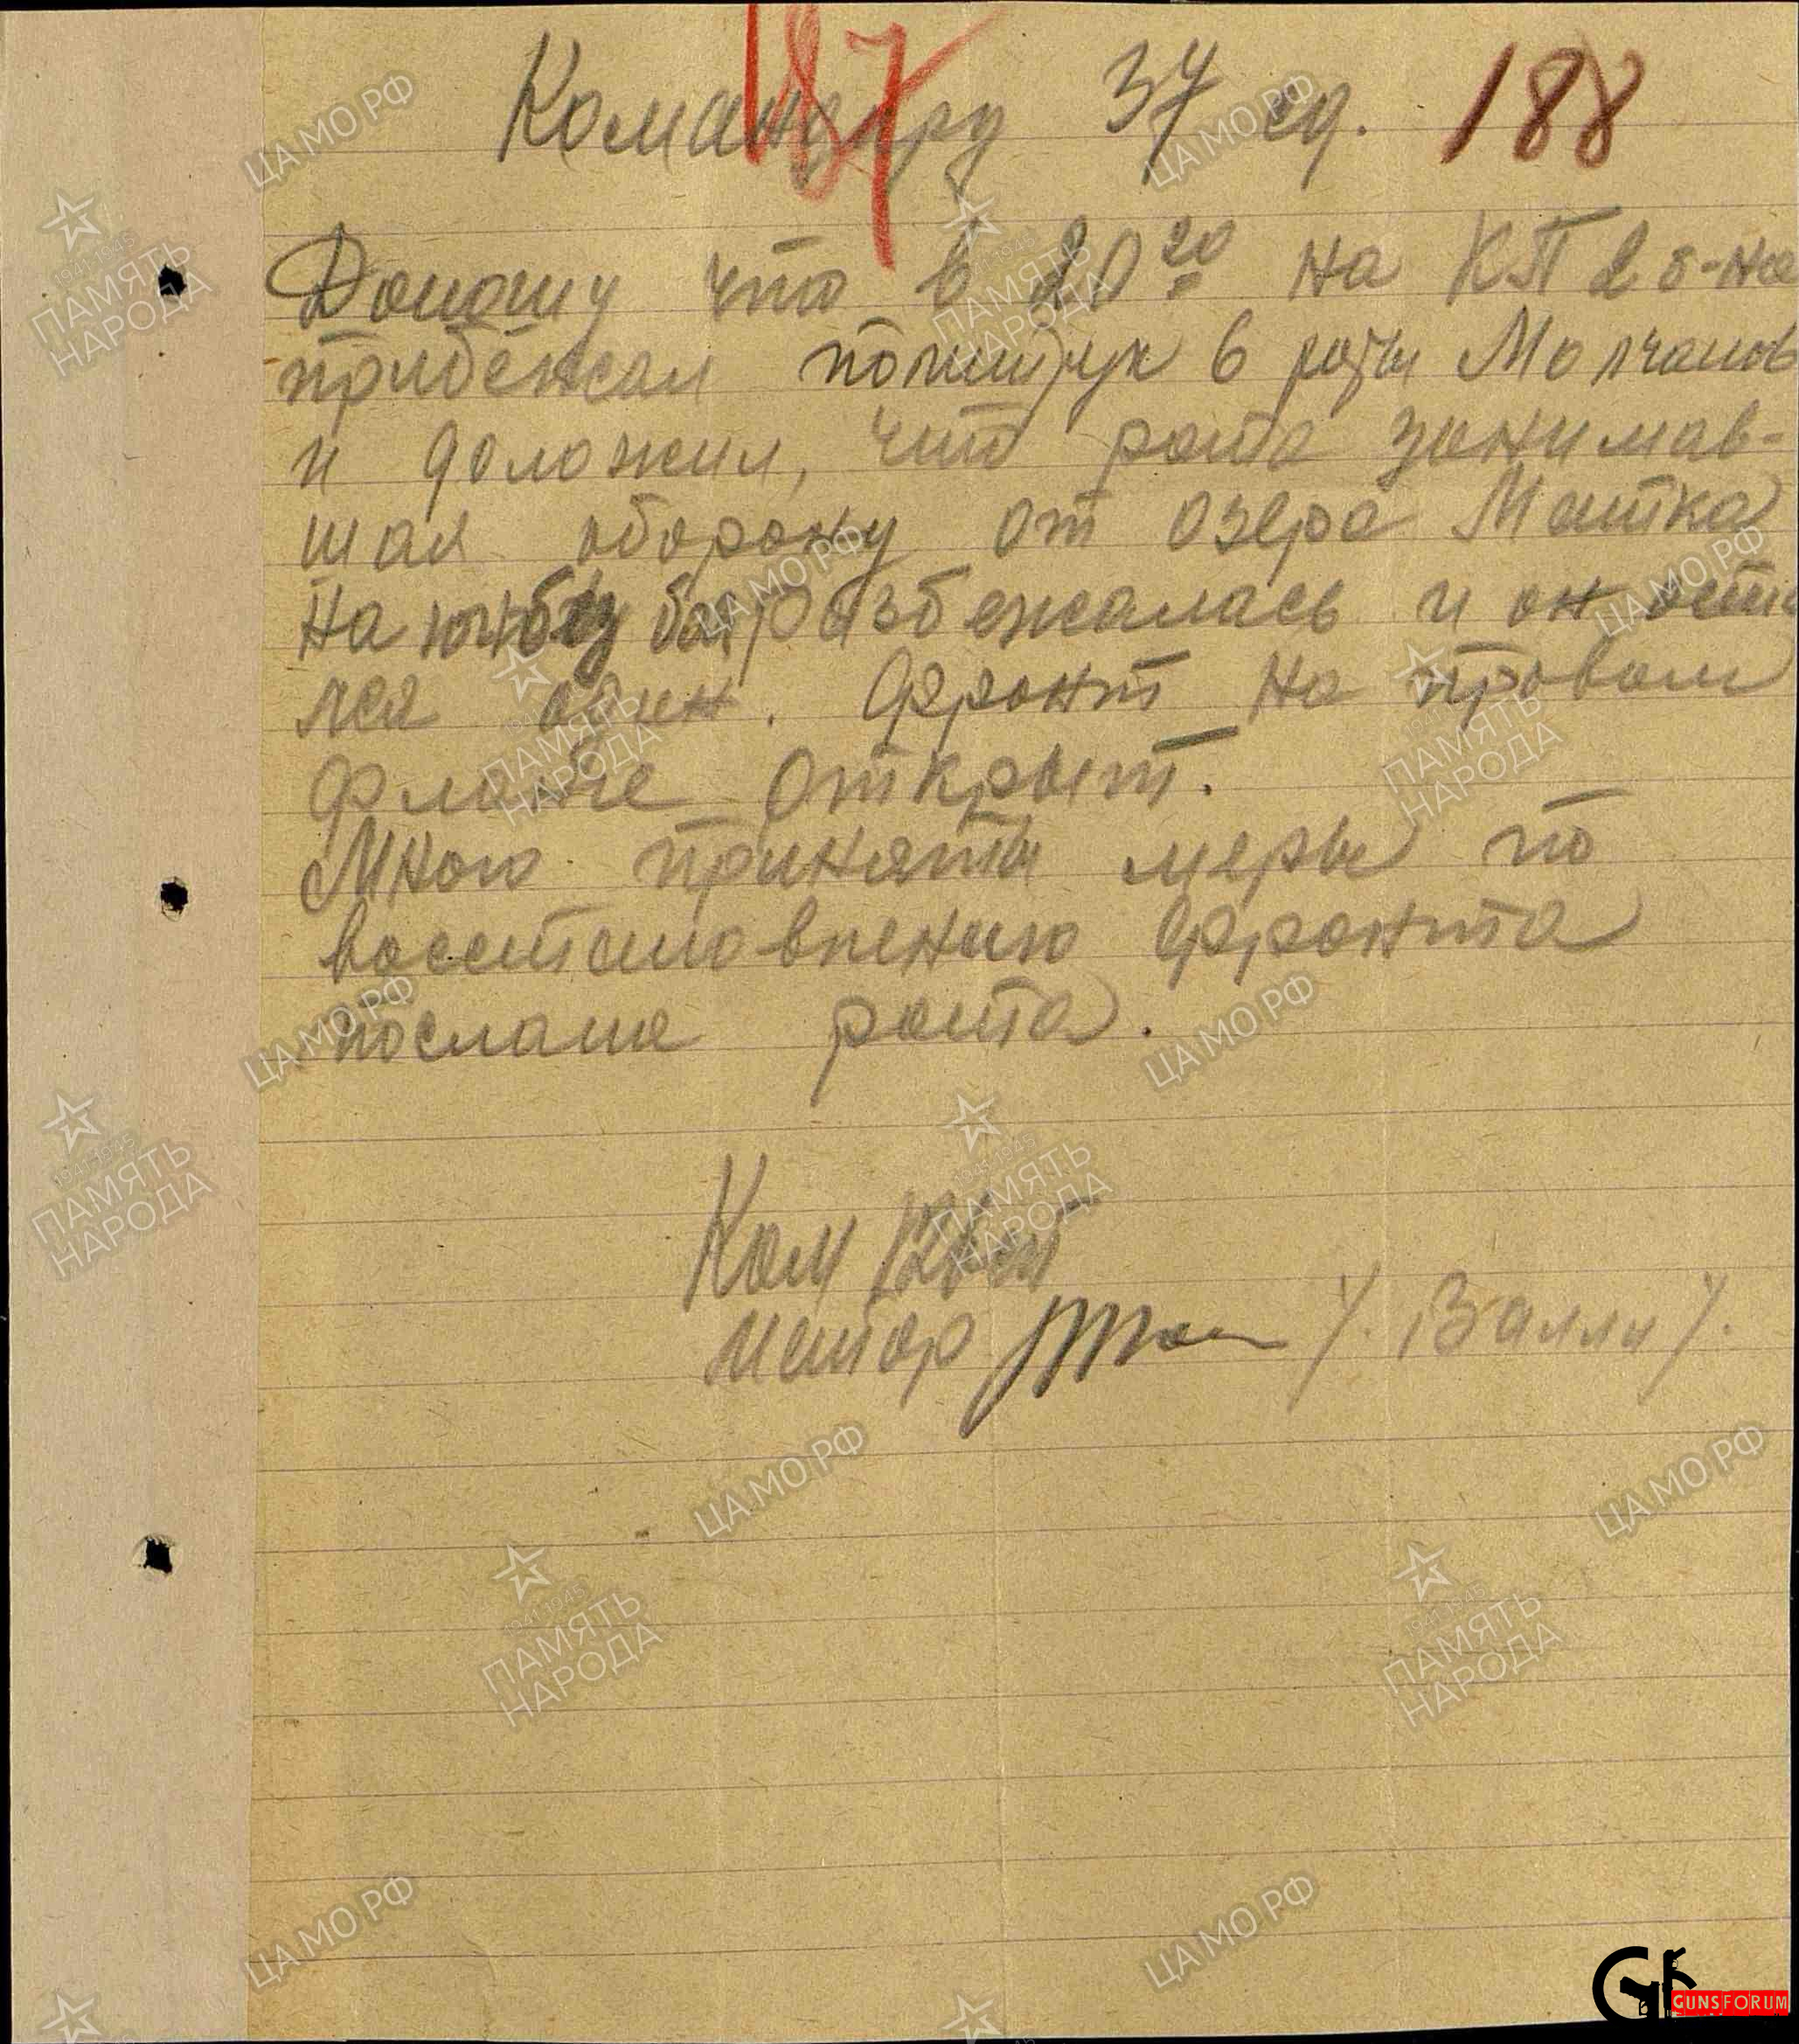 187
Командиру 37 сд. 188
Доношу что в 20 20 на КП 2 б-на
прибежал политрук 6 роты Молчанов
и доложил, что рота занимав-
шая оборону от озера Матка
на разбежалась и он оста
лся один. Фронт на правом
фланге открыт.
Мною приняты меры по
восстановлению фронта
послана рота.
Ком
майор /. Валли /.
ЦАМО РФ
1941-1945
ПАМЯТЬ
НАРОДА
GF
GUNSFORUM